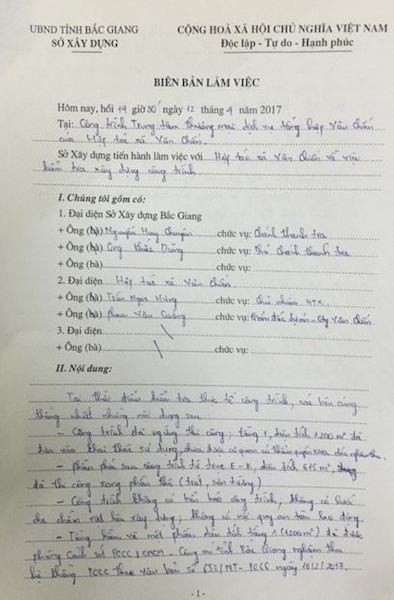 UBND TỈNH BẮC GIANG
SỞ XÂY DỰNG
CỘNG HOÀ XÃ HỘI CHỦ NGHĨA VIỆT NAM
Độc lập - Tự do - Hạnh phúc
BIÊN BẢN LÀM VIỆC
Hôm nay, hồi 14 giờ 30 ngày 12 tháng 4 năm 2017
Tại: Công trình Trung tâm thương mại dịch vụ tổng hợp Văn Chấn
của Hợp tác xã Văn Chấn.
Sở Xây dựng tiến hành làm việc với Hợp tác xã Văn Chấn về việc
kiểm tra xây dựng công trình
I. Chúng tôi gồm có:
1. Đại diện Sở Xây dựng Bắc Giang
+ Ông (bà) Nguyễn Huy chức vụ: Chánh thanh tra
+ Ông (bà) Ong Khắc Dũng chức vụ: Phó Chánh thanh tra
+ Ông (bà) chức vụ:
2. Đại diện Hợp tác xã Văn Chấn
+ Ông (bà) Trần Ngọc Hưng chức vụ: Chủ nhiệm HTX
+ Ông (bà) Phạm Văn Cường chức vụ: Giám đốc dự án - Cty Văn Chấn.
3. Đại diện
+ Ông (bà) chức vụ:
II. Nội dung:
Tại thời điểm kiểm tra thực tế công trình, các bên cùng
thống nhất những nội dung sau
- Công trình đã ngừng thi công, tầng 1, diện tích 1200 m² đã
đưa vào khai thác sử dụng, chưa được cơ quan có thẩm quyền
- phần phía sau công trình từ trục E-K, diện tích 615 m²,
đã thi công xong phần thô (trát, sàn tầng)
- Công trình không có biển báo công trình, không có lưới
che chắn vật liệu xây dựng, không có nội quy an toàn lao động.
- Tầng hầm và một phần diện tích tầng 1 (1200 m²) đã được
phòng Cảnh sát PCCC, CNCH - Công an tỉnh Bắc Giang nghiệm thu
hệ thống PCCC theo văn bản số 652/NT-PCCC ngày 10/2/2017.
- 1 -